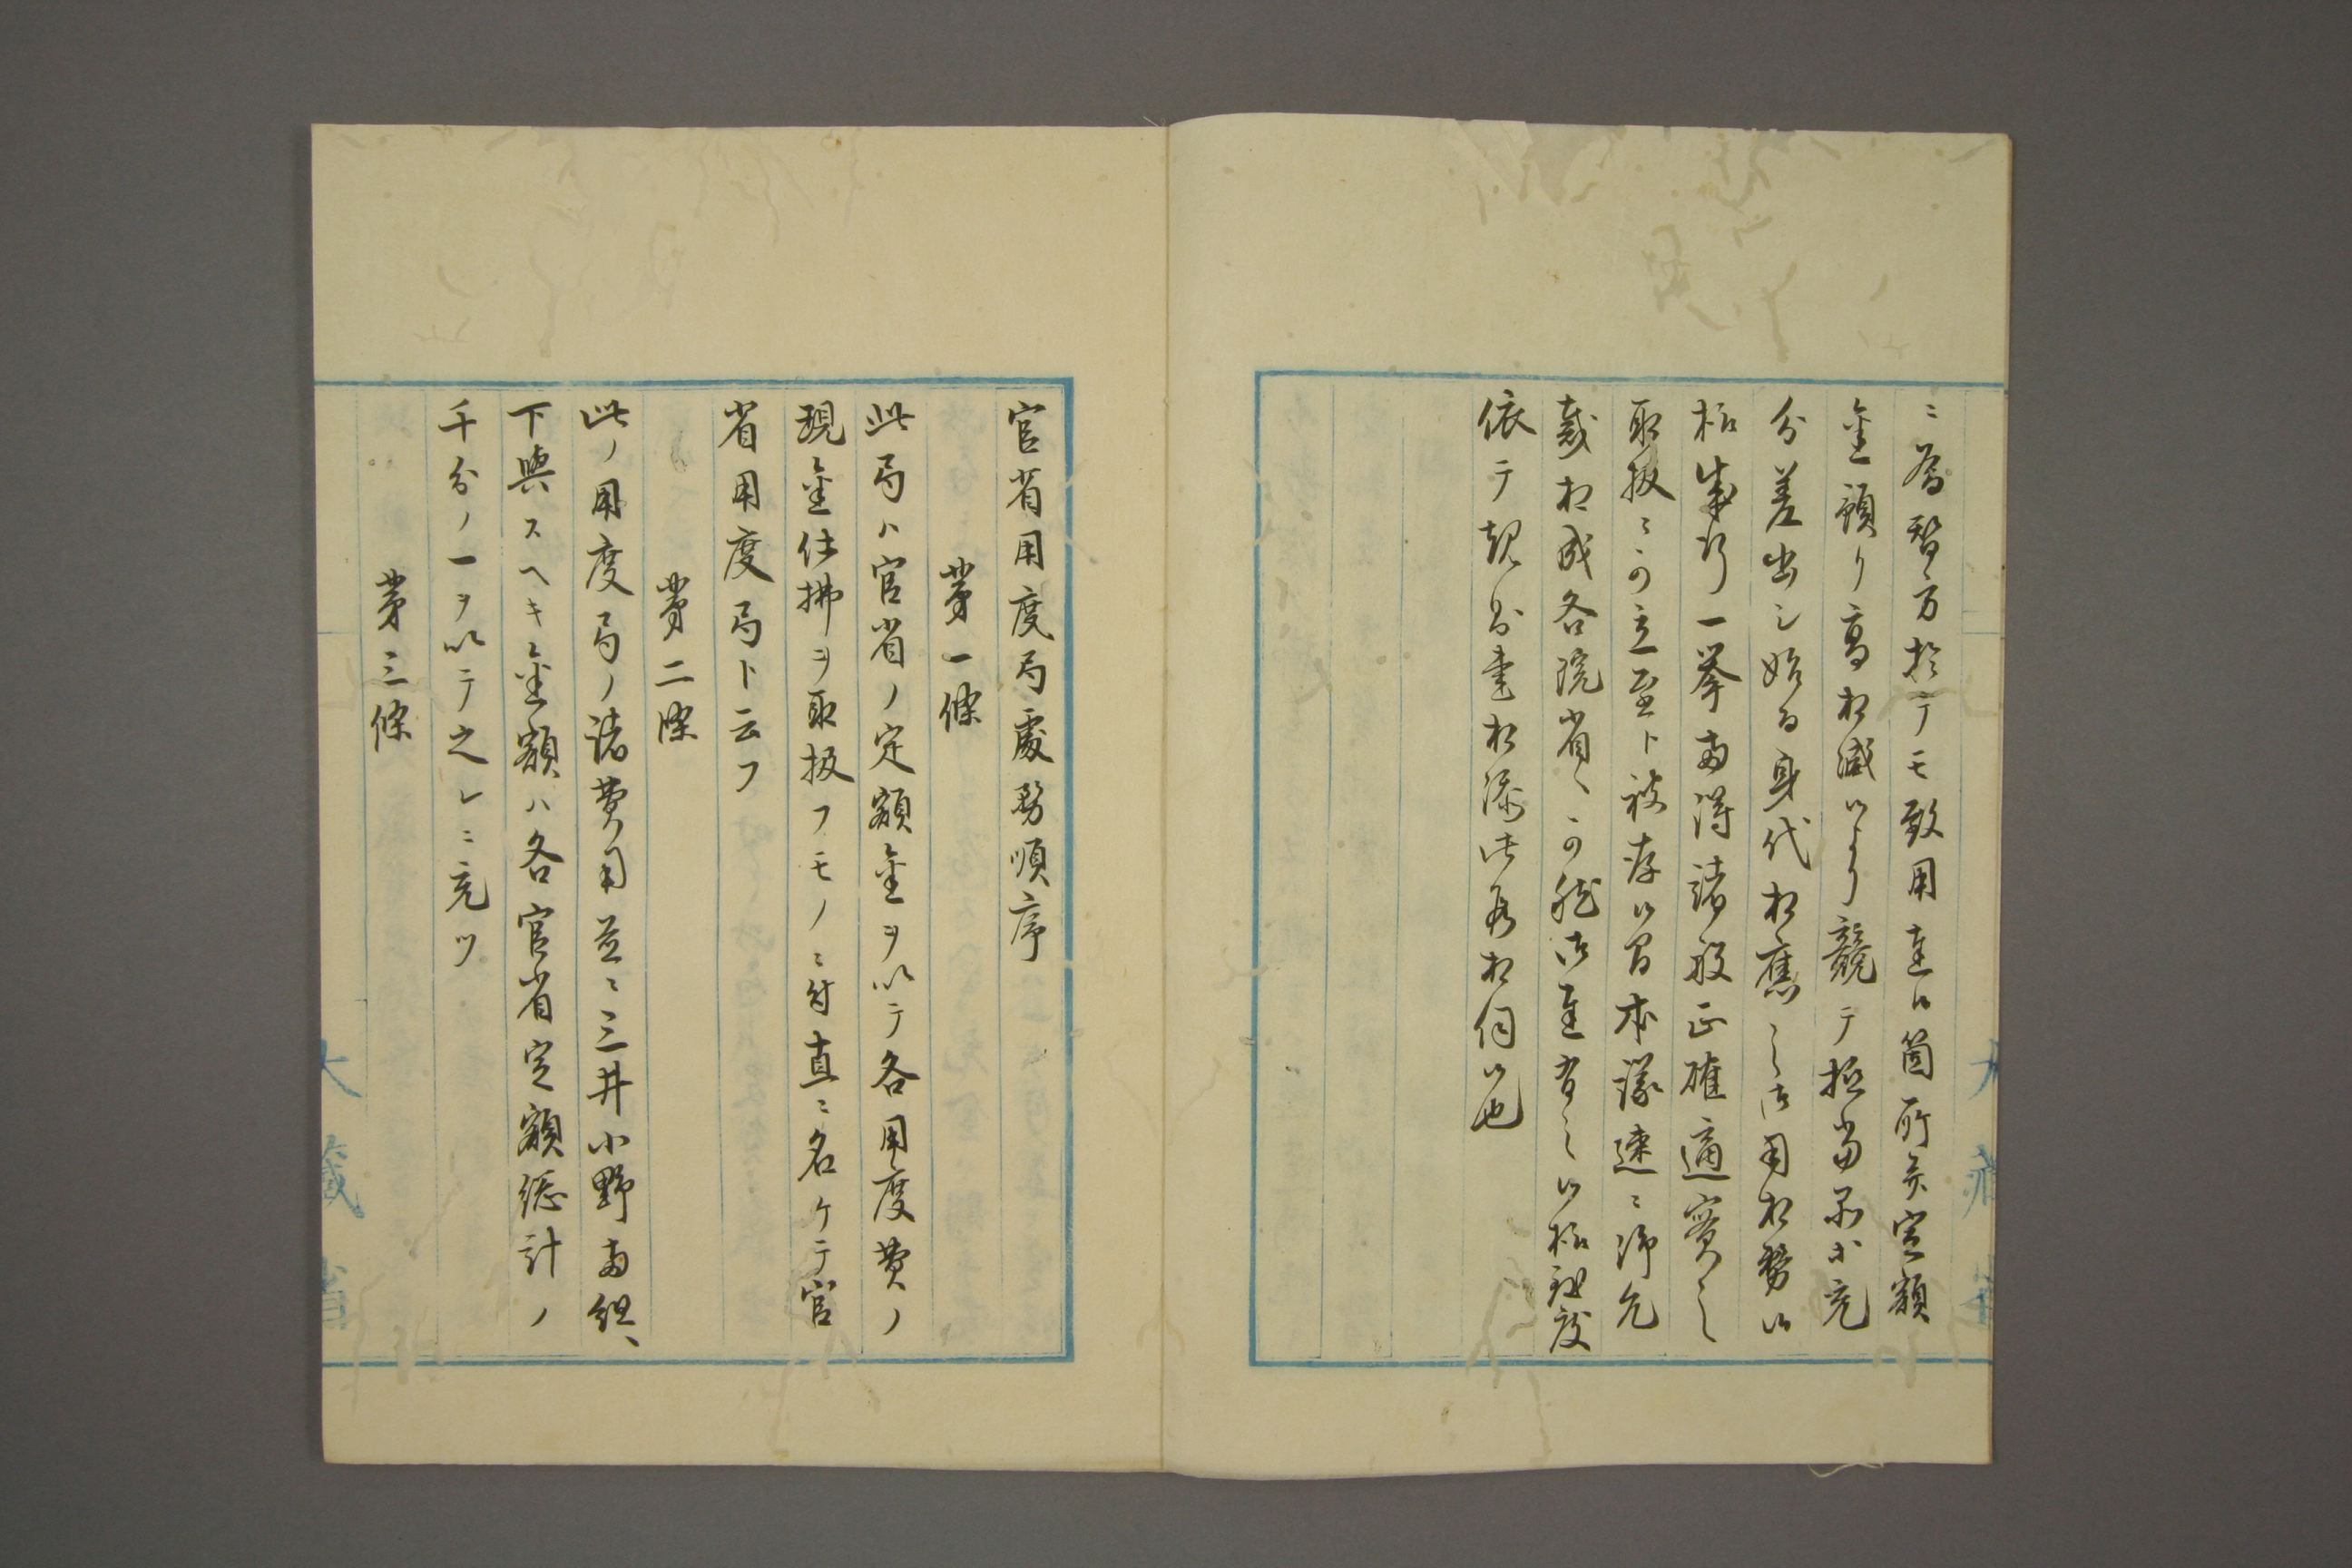 ニ為替方於テモ致用達候箇所并定額
金預り高相減候より競テ抵当品等充
分差出シ始る身代相應之御用相勤候
様成行一挙両得諸般正確適實之
取扱ニ可立至ト被存候間本議速ニ御允
裁相成各院省へ可然御達有之候様致度
依テ規則書相添此段相伺候也
官省用度局處務順序
第一條
此局ハ官省ノ定額金ヲ以テ各用度費ノ
現金仕拂ヲ取扱フモノニ付直ニ名ケテ官
省用度局ト云フ
第二條
此ノ用度局ノ諸費用並ニ三井小野両組へ
下與スヘキ金額ハ各官省定額総計ノ
千分ノ一ヲ以テ之レニ充ツ
第三條
大藏省